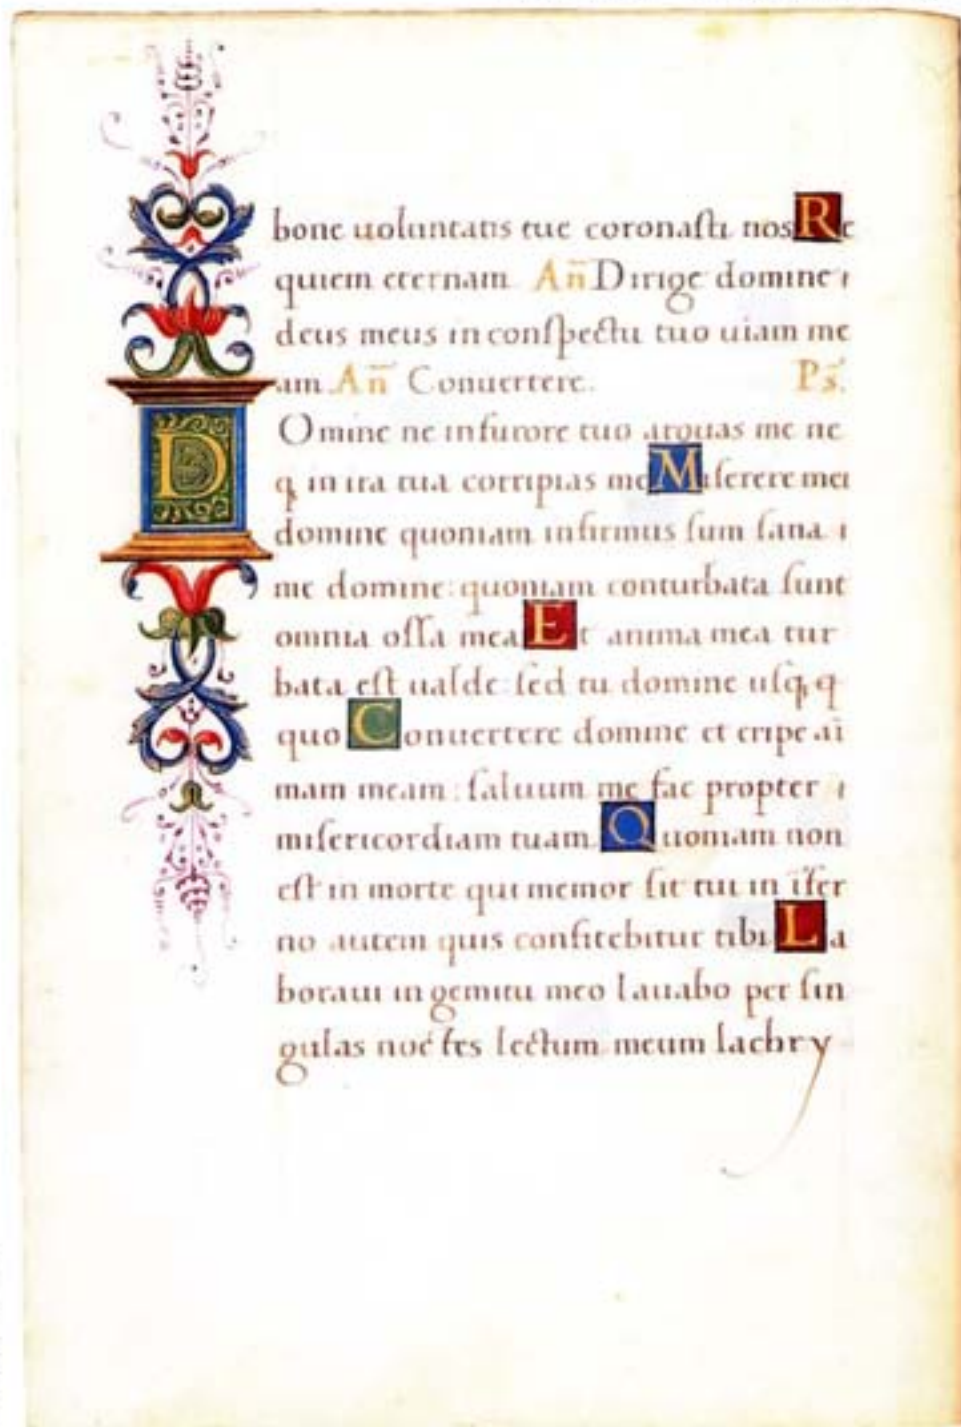 bone uoluntatis tue coronasti nos Re
quiem eternam Añ Dirige domine
deus meus in conspectu tuo uiam me
am Añ Conuertere. Ps.
DOmine ne in furore tuo arguas me ne
q in ira tua corripias me Miserere mei
domine quoniam infirmus sum sana
me domine: quoniam conturbata sunt
omnia ossa mea Et anima mea tur
bata est ualde: sed tu domine usq q
quo Conuertere domine et eripe ai
mam meam: saluum me fac propter
misericordiam tuam Quoniam non
est in morte qui memor sit tui in īfer
no autem quis confitebitur tibi La
boraui in gemitu meo lauabo per sin
gulas noctes lectum meum lachry